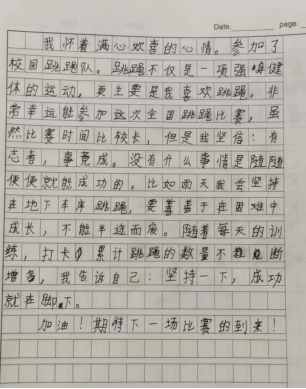 Date. page.
我怀着满心欢喜的心情。参加了
校园跳蹋队。跳蹋不仅是一项强身健
体的运动，更主要是我喜欢跳蹋。非
常幸运能参加这次全国跳蹋比赛，虽
然比赛时间比较长，但是我坚信：有
志者，事竟成。没有什么事情是随随
便便就能成功的。比如雨天我会坚持
在地下车库跳蹋，要善于在困难中
成长，不能半途而废。随着每天的训
练，打卡累计跳蹋的数量不断
增多，我告诉自己：坚持一下，成功
就在脚下。
加油！期待下一场比赛的到来！